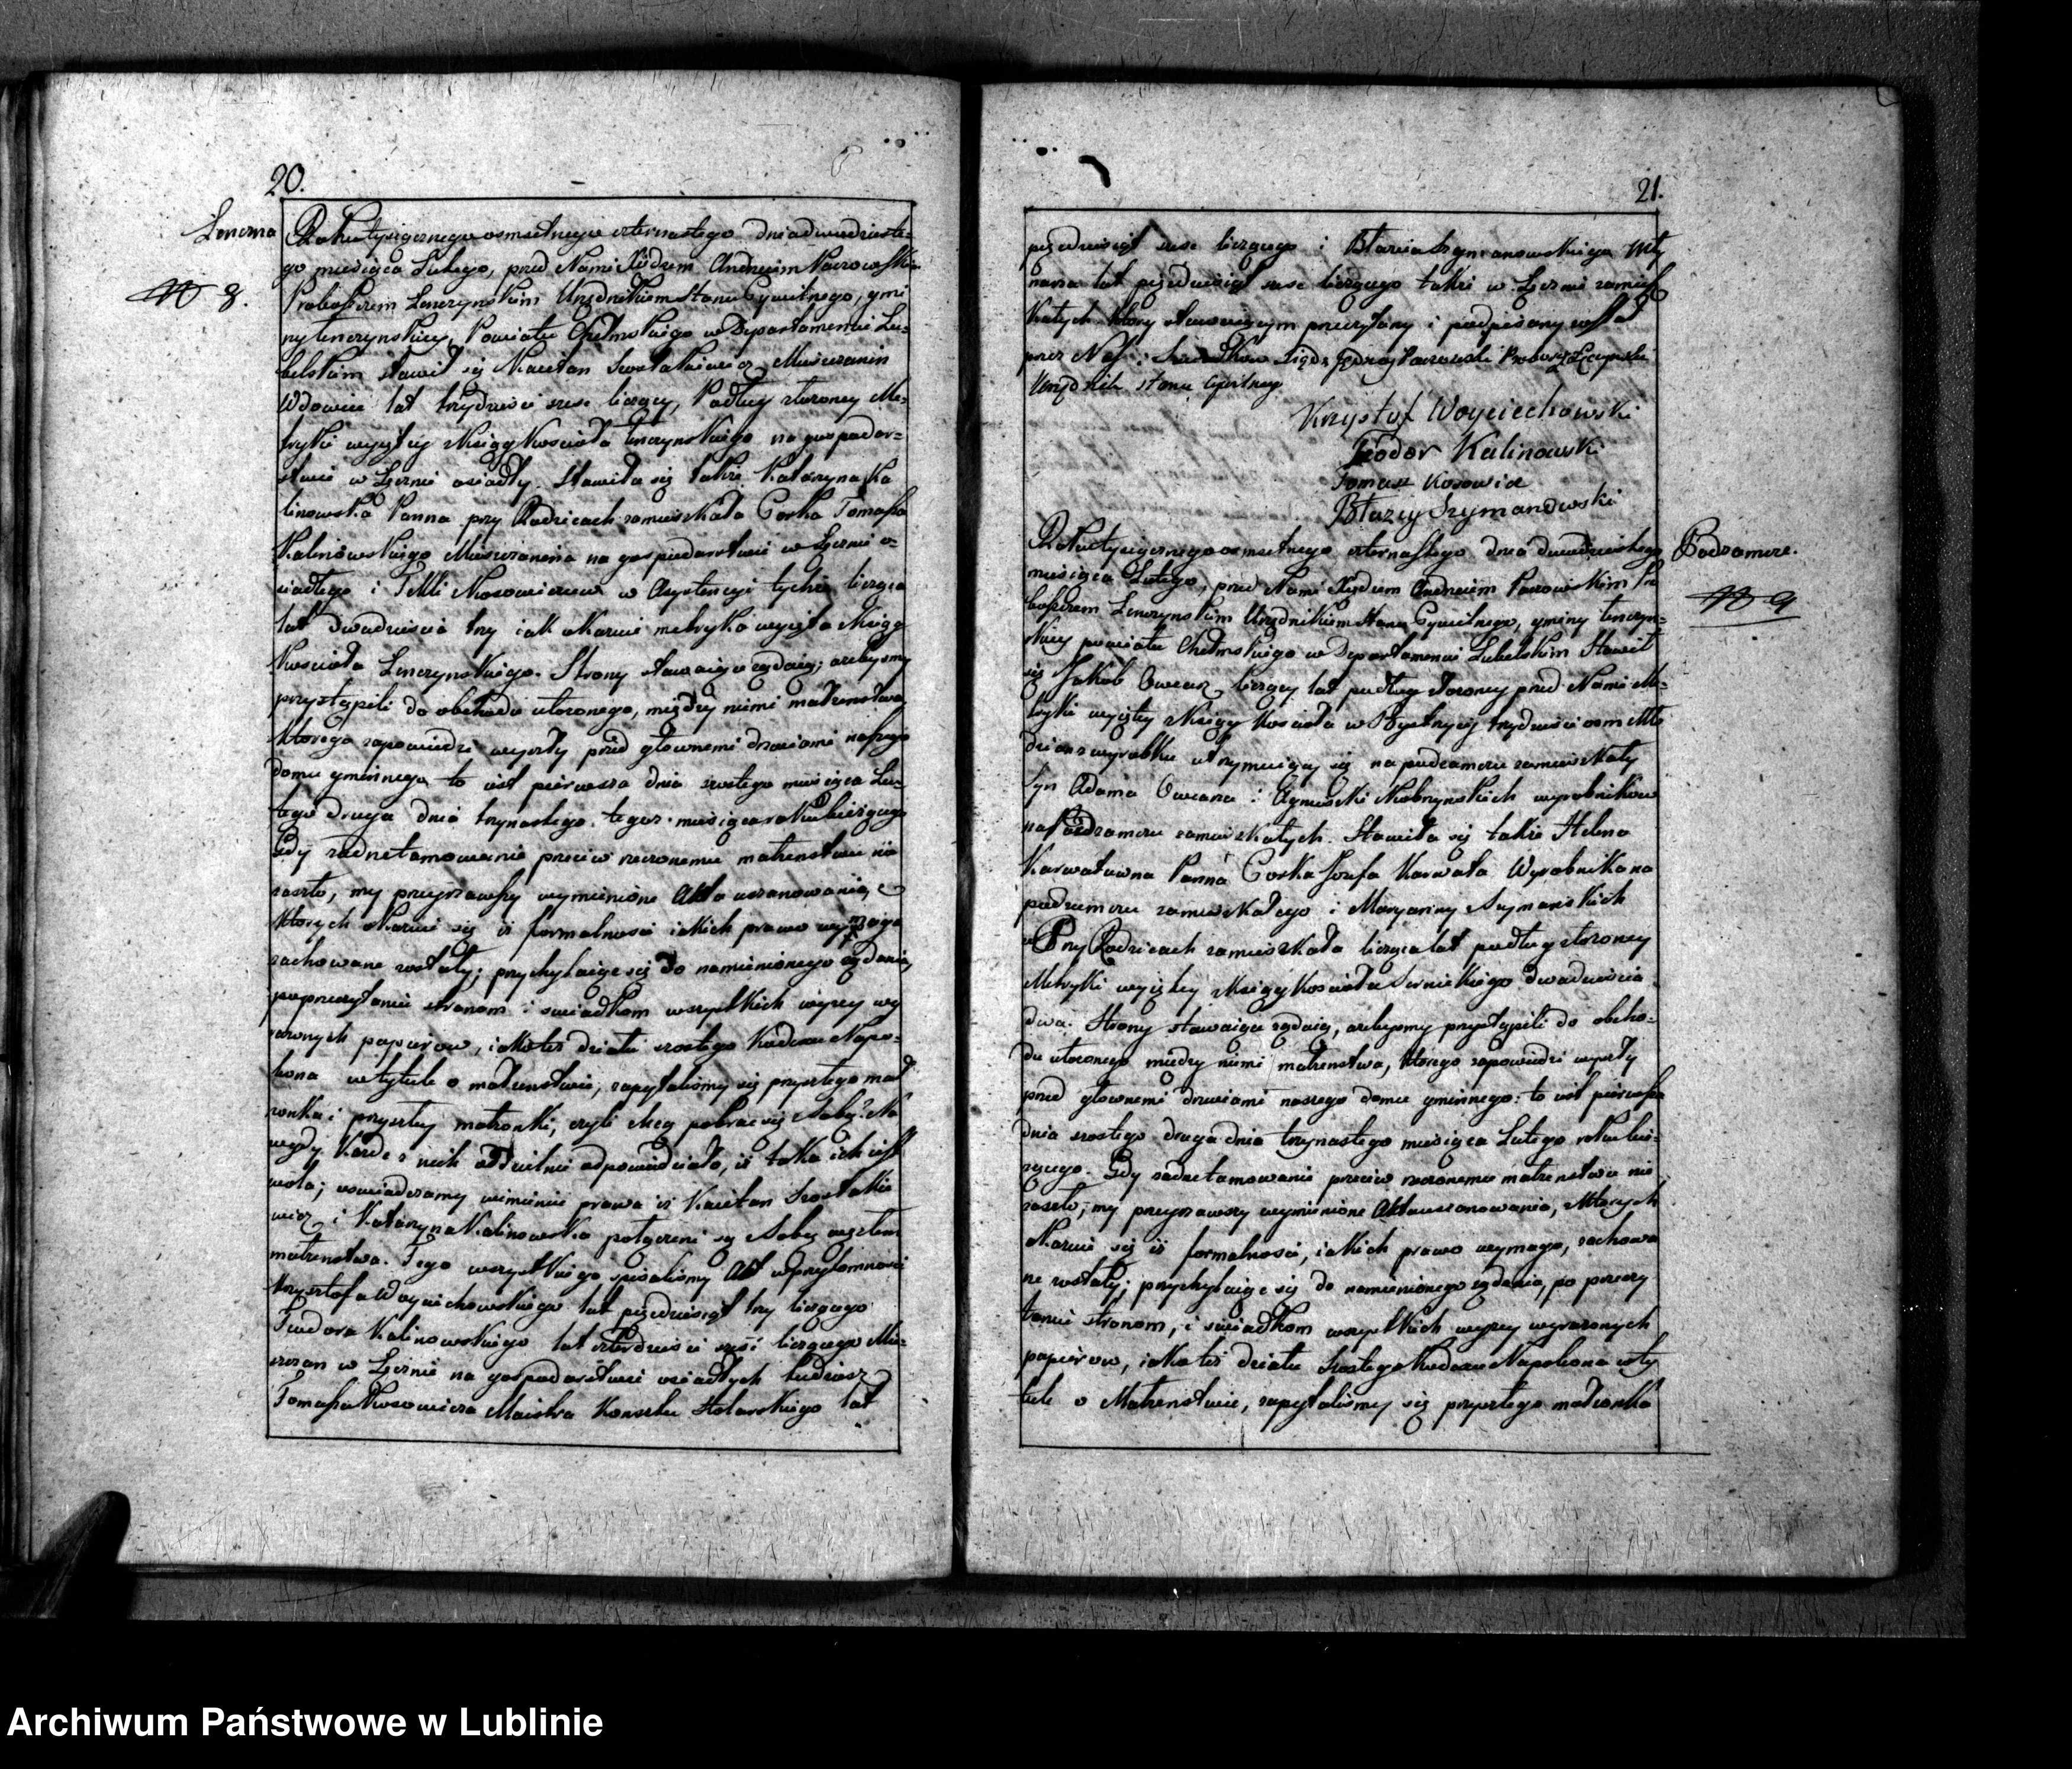 20.
Lenczna
N 8.
Roku tysiącznego osmsetnego czternastego dnia dwudzieste=
go miesiąca Lutego, przed Nami Xiędzem Andrzeiem Paczowskim
Proboszczem Lenczynskim Urzędnikiem Stanu Cywilnego, gmi
ny Lenczynskiey, Powiatu Chełmskiego w Departamencie Lu=
belskim stawił się Kaietan Szostakiewicz Mieszczanin
Wdowiec lat trzydzieści szesc liczący, Podług złozoney Me=
tryki wyiętey z Księgi Kościoła Lenczynskiego na gospodar=
stwie w Lęcznie osiadły. Stawiła się także Katarzyna Ka
linowska Panna przy Rodzicach zamieszkała Corka Tomasza
Kalinowskiego Mieszczanina na gospodarstwie w Lęcznie o=
siadłego i Tekli Kosowiczow w Asystencyi tychże licząca
lat Dwadzieścia trzy iak okazuie metryka wyięta z Księgi
Kościoła Lenczynskiego. Strony stawaiące ządaią; azebysmy
przystąpili do obchodu ułozonego, między niemi małzenstwa
ktorego zapowiedzi wyszły przed głownemi drzwiami naszego
domu gminnego to iest pierwsza dnia szostego miesiąca Lu=
tego druga dnia trzynastego tegoz miesiąca roku biezącego
Gdy zadne tamowanie przeciw rzeczonemu małzenstwu nie
zaszło, my przeyrzawszy wymienione Akta uszanowania, z
ktorych okazuie się iż formalnosci iakich prawo wymaga
zachowane zostały; przychylaiąc się do namienionego ządania,
po przeczytaniu stronom i swiadkom wszystkich wyzey wy
razonych papierow, iako też działu szostego Kodexu Napo=
leona w tytule o małzenstwie, zapytaliśmy się przyszłego mał
zonka i przyszłey małzonki, czyli chcą pobrac się z Sobą? Na
co gdy Kazde z nich oddzielnie odpowiedziało, iż taka ich iest
wola; oswiadczamy wimieniu prawa iż Kaietan Szostakie
wicz i Katarzyna Kalinowska połączeni są z Sobą węzłem
małzenstwa. Tego wszystkiego spisalismy Akt w przytomności
Krzysztofa Woyciechowskiego lat pięcdziesiąt trzy liczącego
Teodora Kalinowskiego lat czterdzieści szesć liczącego Mie=
szczan w Lęcznie na gospodarstwie osiadłych tudziesz
Tomasza Kosowicza Maistra Konsztu Stolarskiego lat
21.
pięcdziesiąt szesc liczącego i Błazeia Szymanowskiego Mły
narza lat pięcdziesiąt szesc liczącego także w Lęcznie zamiesz
kałych ktory stawaiącym przeczytany i podpisany został
przez Nas i Swiadkow Xiądz Jędrzey Paczowski Proboszcz Łęczynski
Urzędnik stanu cywilnego
Krzysztof Woyciechowski
Teodor Kalinowski
Tomasz Kosowicz
Błazey Szymanowski
Podzamcze.
N 9
Roku tysiącznego osmsetnego czternastego dnia dwudziestego
miesiąca Lutego, przed Nami Xiędzem Andrzeiem Paczowskim Pro
boszczem Lenczynskim Urzędnikiem Stanu Cywilnego, gminy Lenczyn=
skiey powiatu Chełmskiego w Departamencie Lubelskim Stawił
się Jakob Owczarz liczący lat podług złozoney przed Nami Me=
tryki wyiętey z Księgi Kościoła w Bystrzycy trzydzieści osm Mło
dzian z wyrobku utrzymuiący się na podzamczu zamieszkały
Syn Adama Owczarza i Agnieszki Kobrynskich wyrobnikow
na Podzamczu zamieszkałych. Stawiła się także Helena
Karwatowna Panna Corka Jozefa Karwata Wyrobnika na
podzamczu zamieszkałego i Maryanny Szymanskich
Przy Rodzicach zamieszkała licząca lat podług złozoney
Metryki wyiętey z Księgi Kościoła Sernickiego dwadzieścia
dwa. Strony stawaiące ządaią, azebysmy przystąpili do obcho=
du ułozonego miedzy niemi małzenstwa, ktorego zapowiedzi wyszły
przed głownemi drzwiami naszego domu gminnego: to iest pierwsza
dnia szostego druga dnia trzynastego miesiąca Lutego roku bie=
zącego. Gdy zadne tamowanie przeciw rzeczonemu małzenstwu nie
zaszło; my przeyrzawszy wymienione Akta uszanowania, z ktorych
okazuie się iż formalnosci, iakich prawo wymaga, zachowa
ne zostały; przychylaiąc się do namienionego ządania, po przeczy
taniu stronom, i swiadkom wszystkich wyzey wyrazonych
papierow, iako też działu Szostego Kodexu Napoleona w ty
tule o Małzenstwie, zapytaliśmy się przyszłego małzonka
Archiwum Państwowe w Lublinie